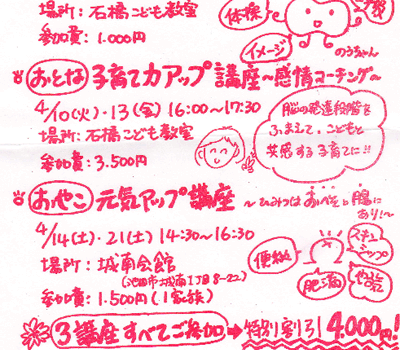 場所：石橋こども教室
体操
参加費：1.000円
イメージ
のうちゃん
おとな 子育て力アップ講座～感情コーチング～
4/10(火)・13(金) 16:00～17:30
場所：石橋こども教室
参加費：3.500円
脳の発達段階を
ふまえて、こどもと
共感する子育てに!!
おやこ 元気アップ講座 ～ひみつはおへそと腸に
あり!～
4/14(土)・21(土) 14:30～16:30
場所：城南会館
(池田市城南1丁目8-22)
参加費：1.500円(1家族)
便秘
スキンシップ
肥満
3講座すべてご参加→特別割引 4.000円!